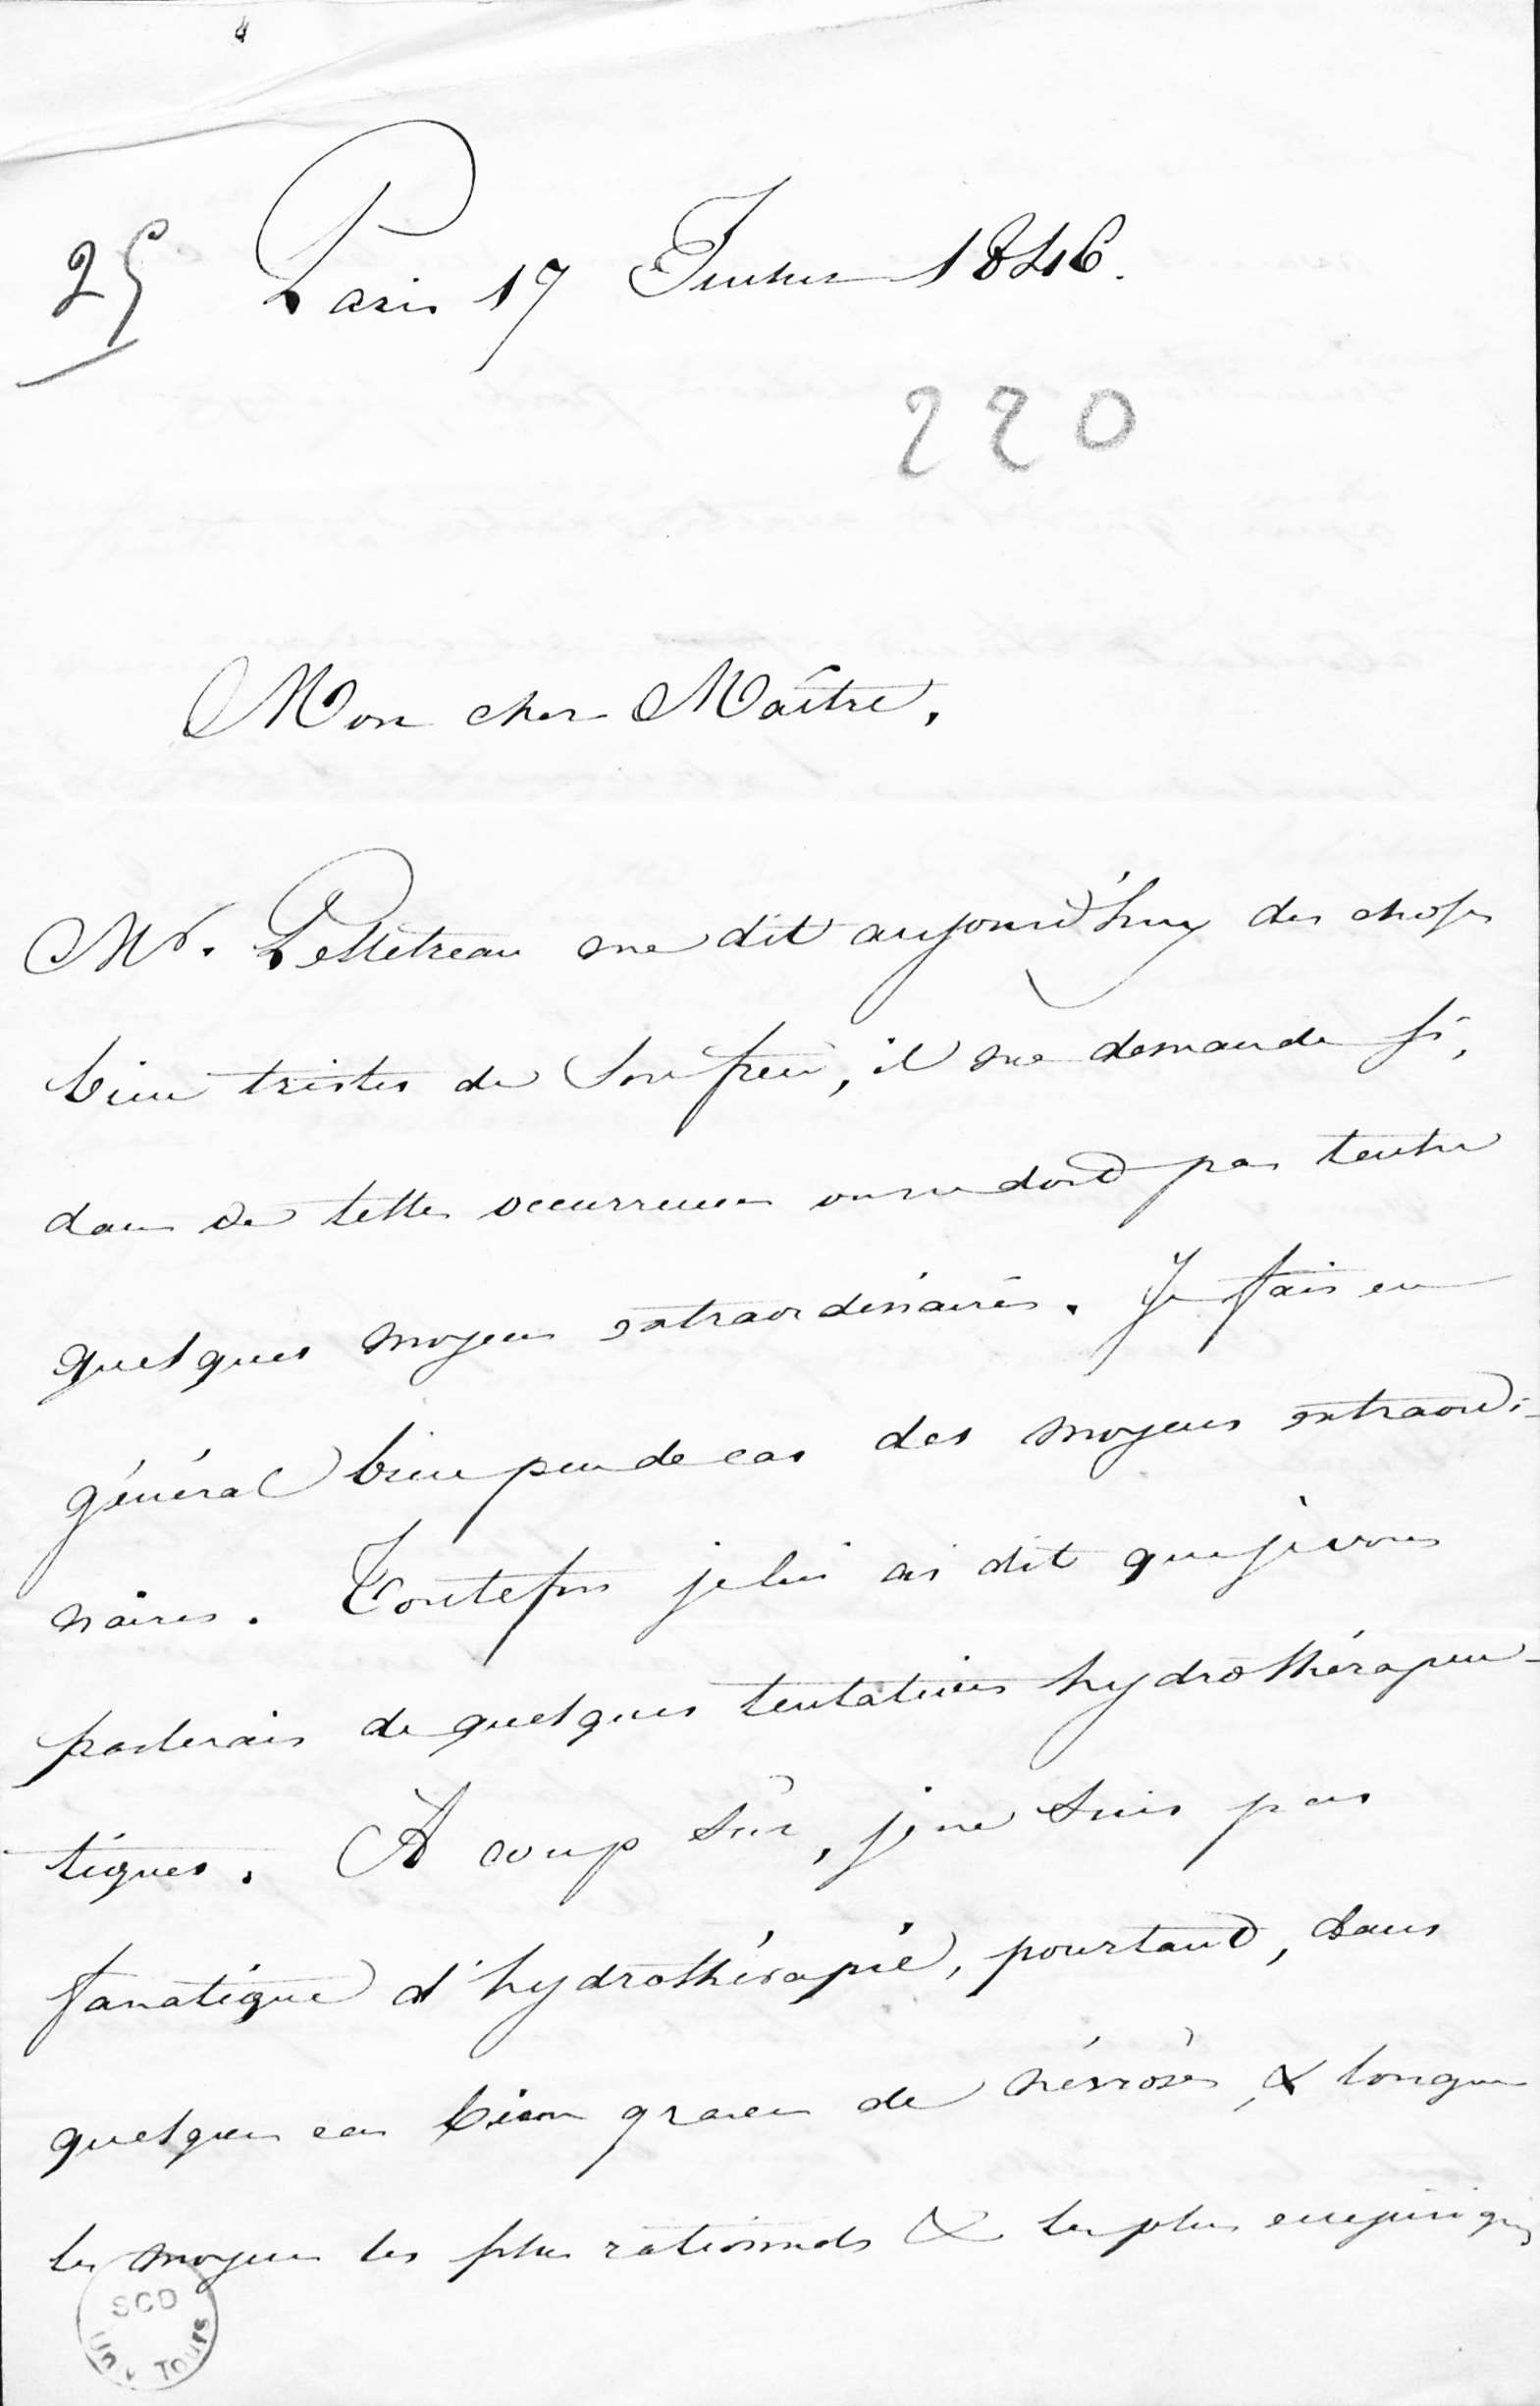 25 Paris 17 Février 1846.
220
Mon cher Maître,
Mr. Pelletreau me dit aujourd'huy des choses
bien tristes de Son frère, il me demande si,
dans de telles occurrences on ne doit pas tenter
quelques moyens extraordinaires. Je fais en
général bien peu de cas des moyens extraordi-
naires. Toutefois je lui ai dit que je vous
parlerais de quelques tentatives hydrothérapeu-
tiques. A coup sûr, je ne suis pas
fanatique d'hydrothérapie, pourtant, dans
quelques cas bien graves de névroses, & lorsque
les moyens les plus rationnels & les plus empiriques
SCD
Univ Tours